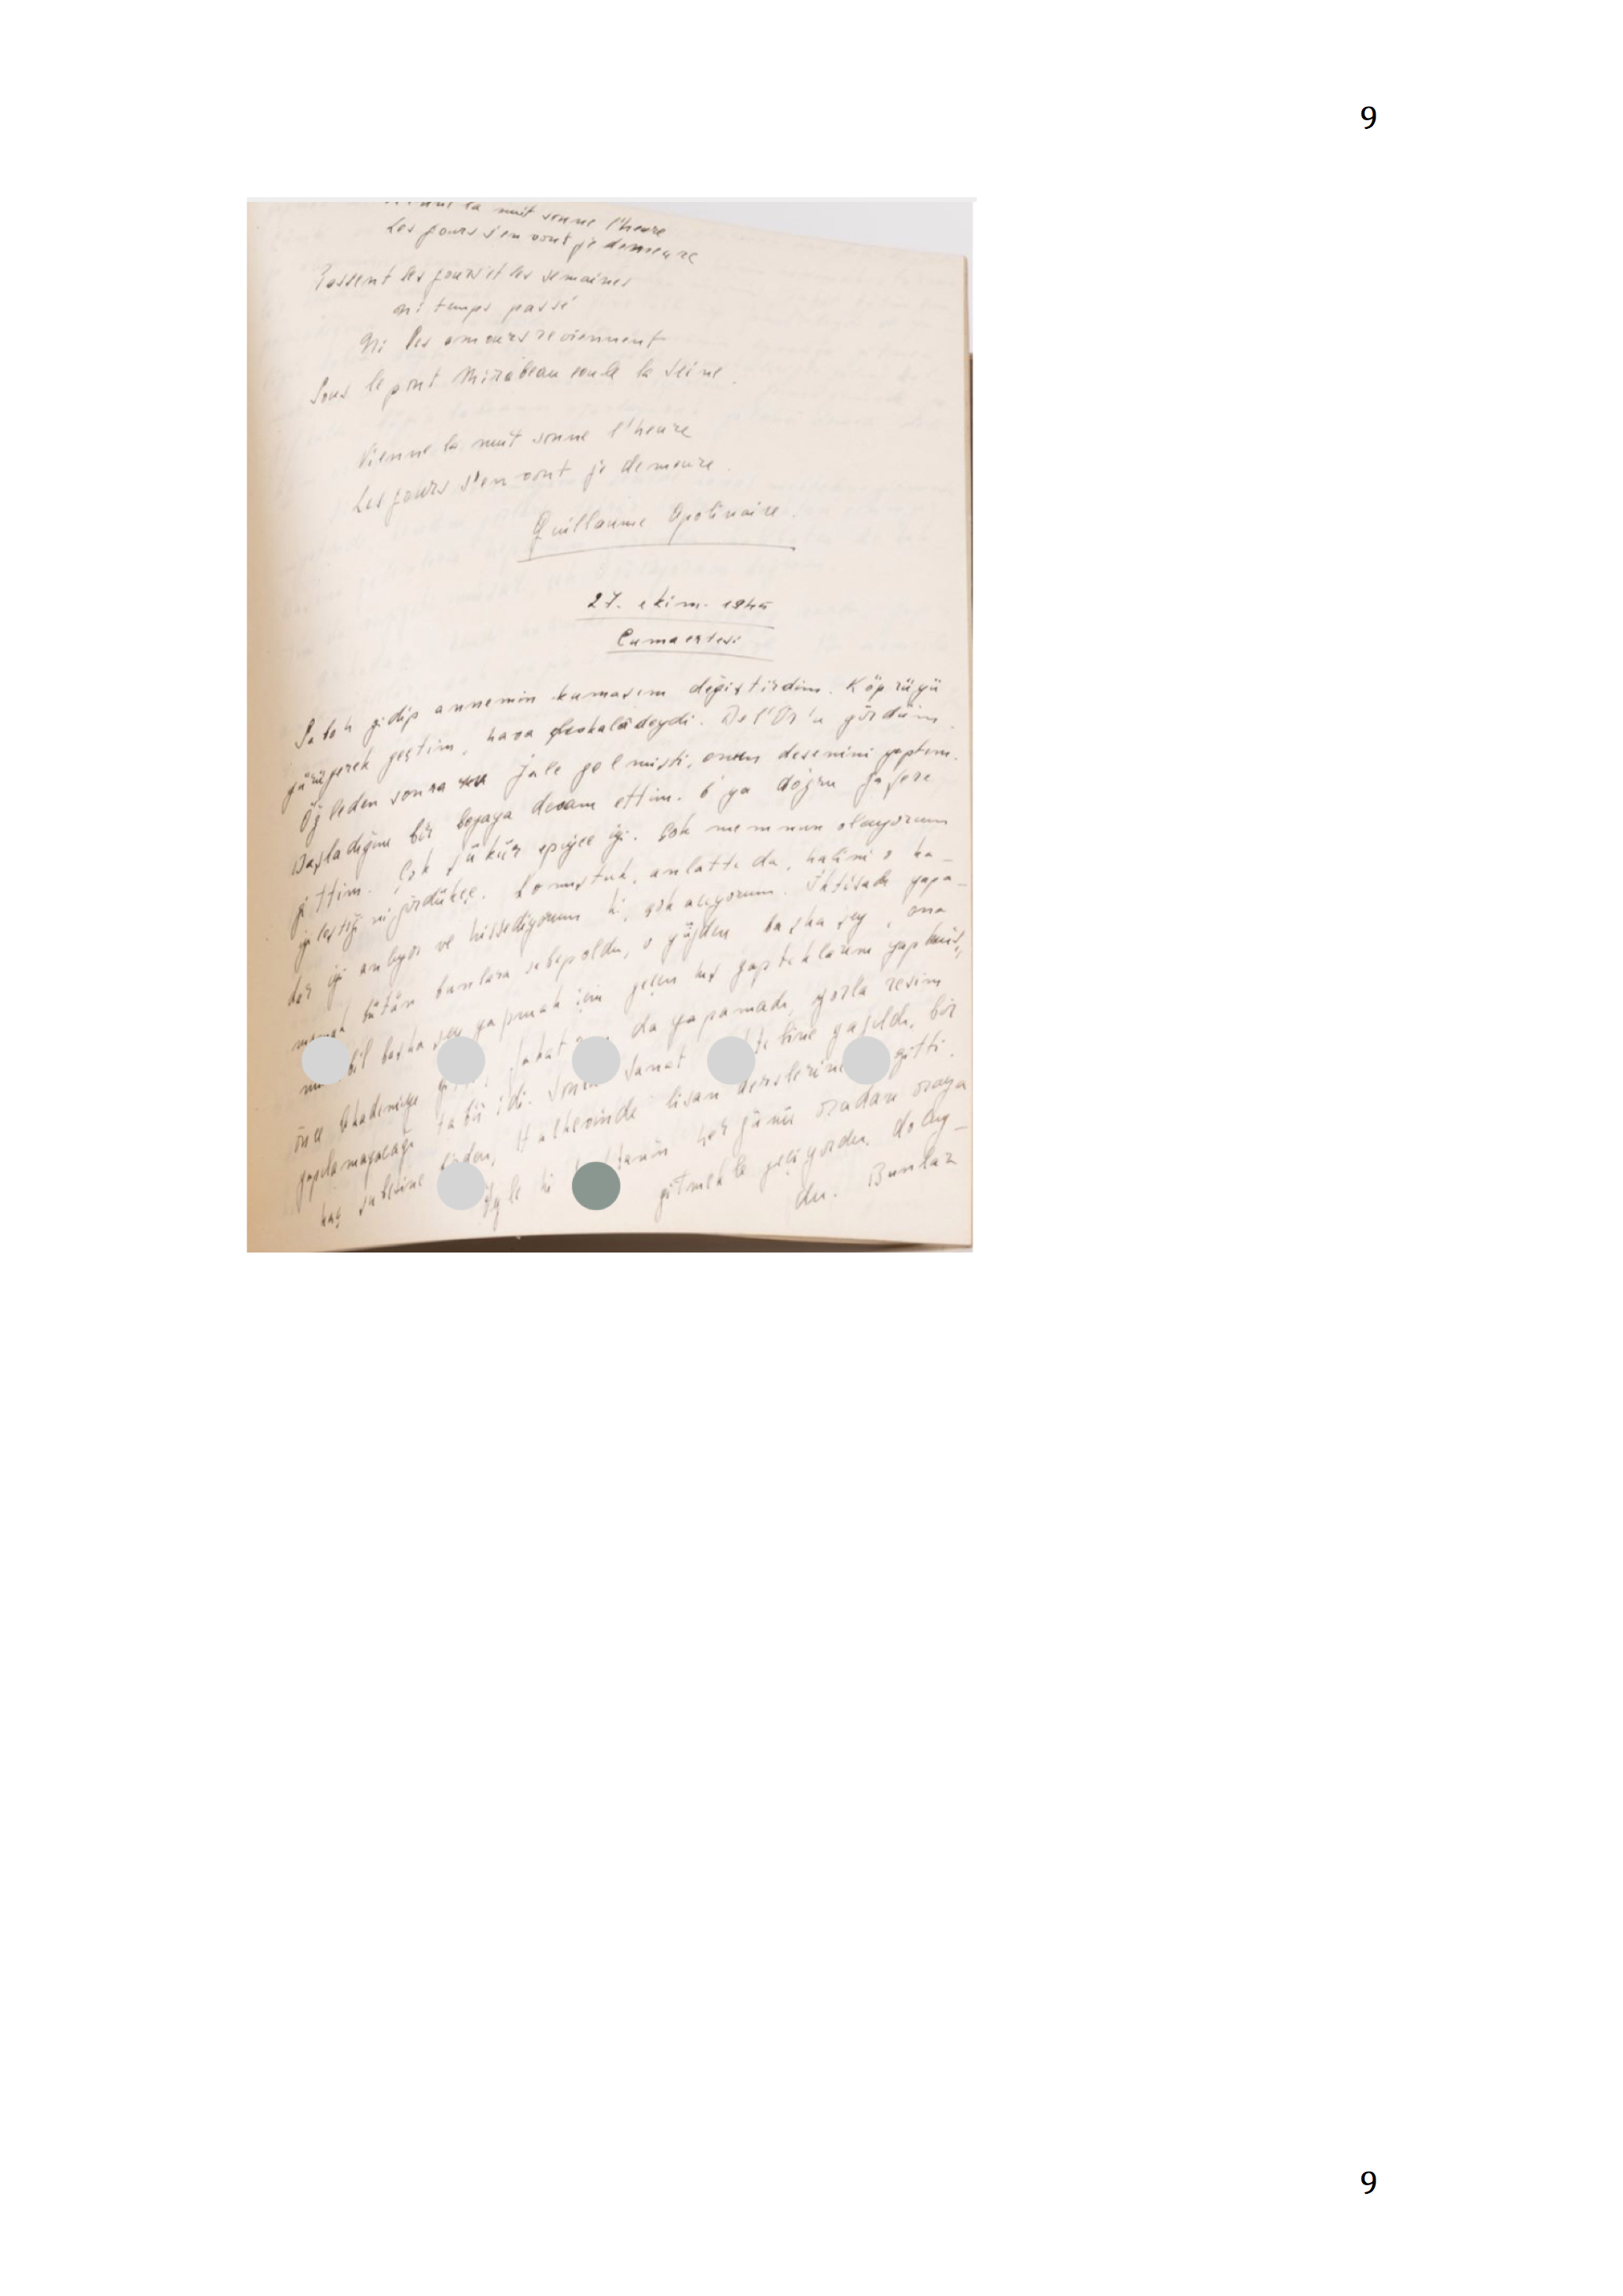 9
Vienne la nuit sonne l'heure
Les jours s'en vont je demeure
Passent les jours et les semaines
ni temps passé
Ni les amours reviennent
Sous le pont Mirabeau coule la Seine.
Vienne la nuit sonne l'heure
Les jours s'en vont je demeure.
Guillaume Apolinaire.
27. ekim. 1945
Cumaertesi
Sabah gidip annemin kumaşını değiştirdim. Köprüyü
yürüyerek geçtim, hava fevkalâdeydi. De l'Or'u gördüm.
Öğleden sonra Jale gelmişti, onun desenini yaptım.
Başladığım bir boyaya devam ettim. 6 ya doğru
gittim. Çok şükür epiyce iyi. Çok memnun oluyorum
iyileştiğini gördükçe. Konuştuk, anlattı da, halini o ka-
dar iyi anlıyor ve hissediyorum ki, çok acıyorum. İktisadı yapa-
mamak bütün bunlara sebep oldu, o yüzden başka şey, ona
mukabil başka şey yapmak için geçen kış yaptıklarını yapmış,
önce Akademiye fakat da yapamadı, zorla resim
yapılamayacağı tabii idi. Sonra Sanat yazıldı, bir
kaç şubesine Halkevinde lisan derslerine gitti.
Öyle ki her günü oradan oraya
gitmekle geçiyordu. dolay-
du. Bunlar
9